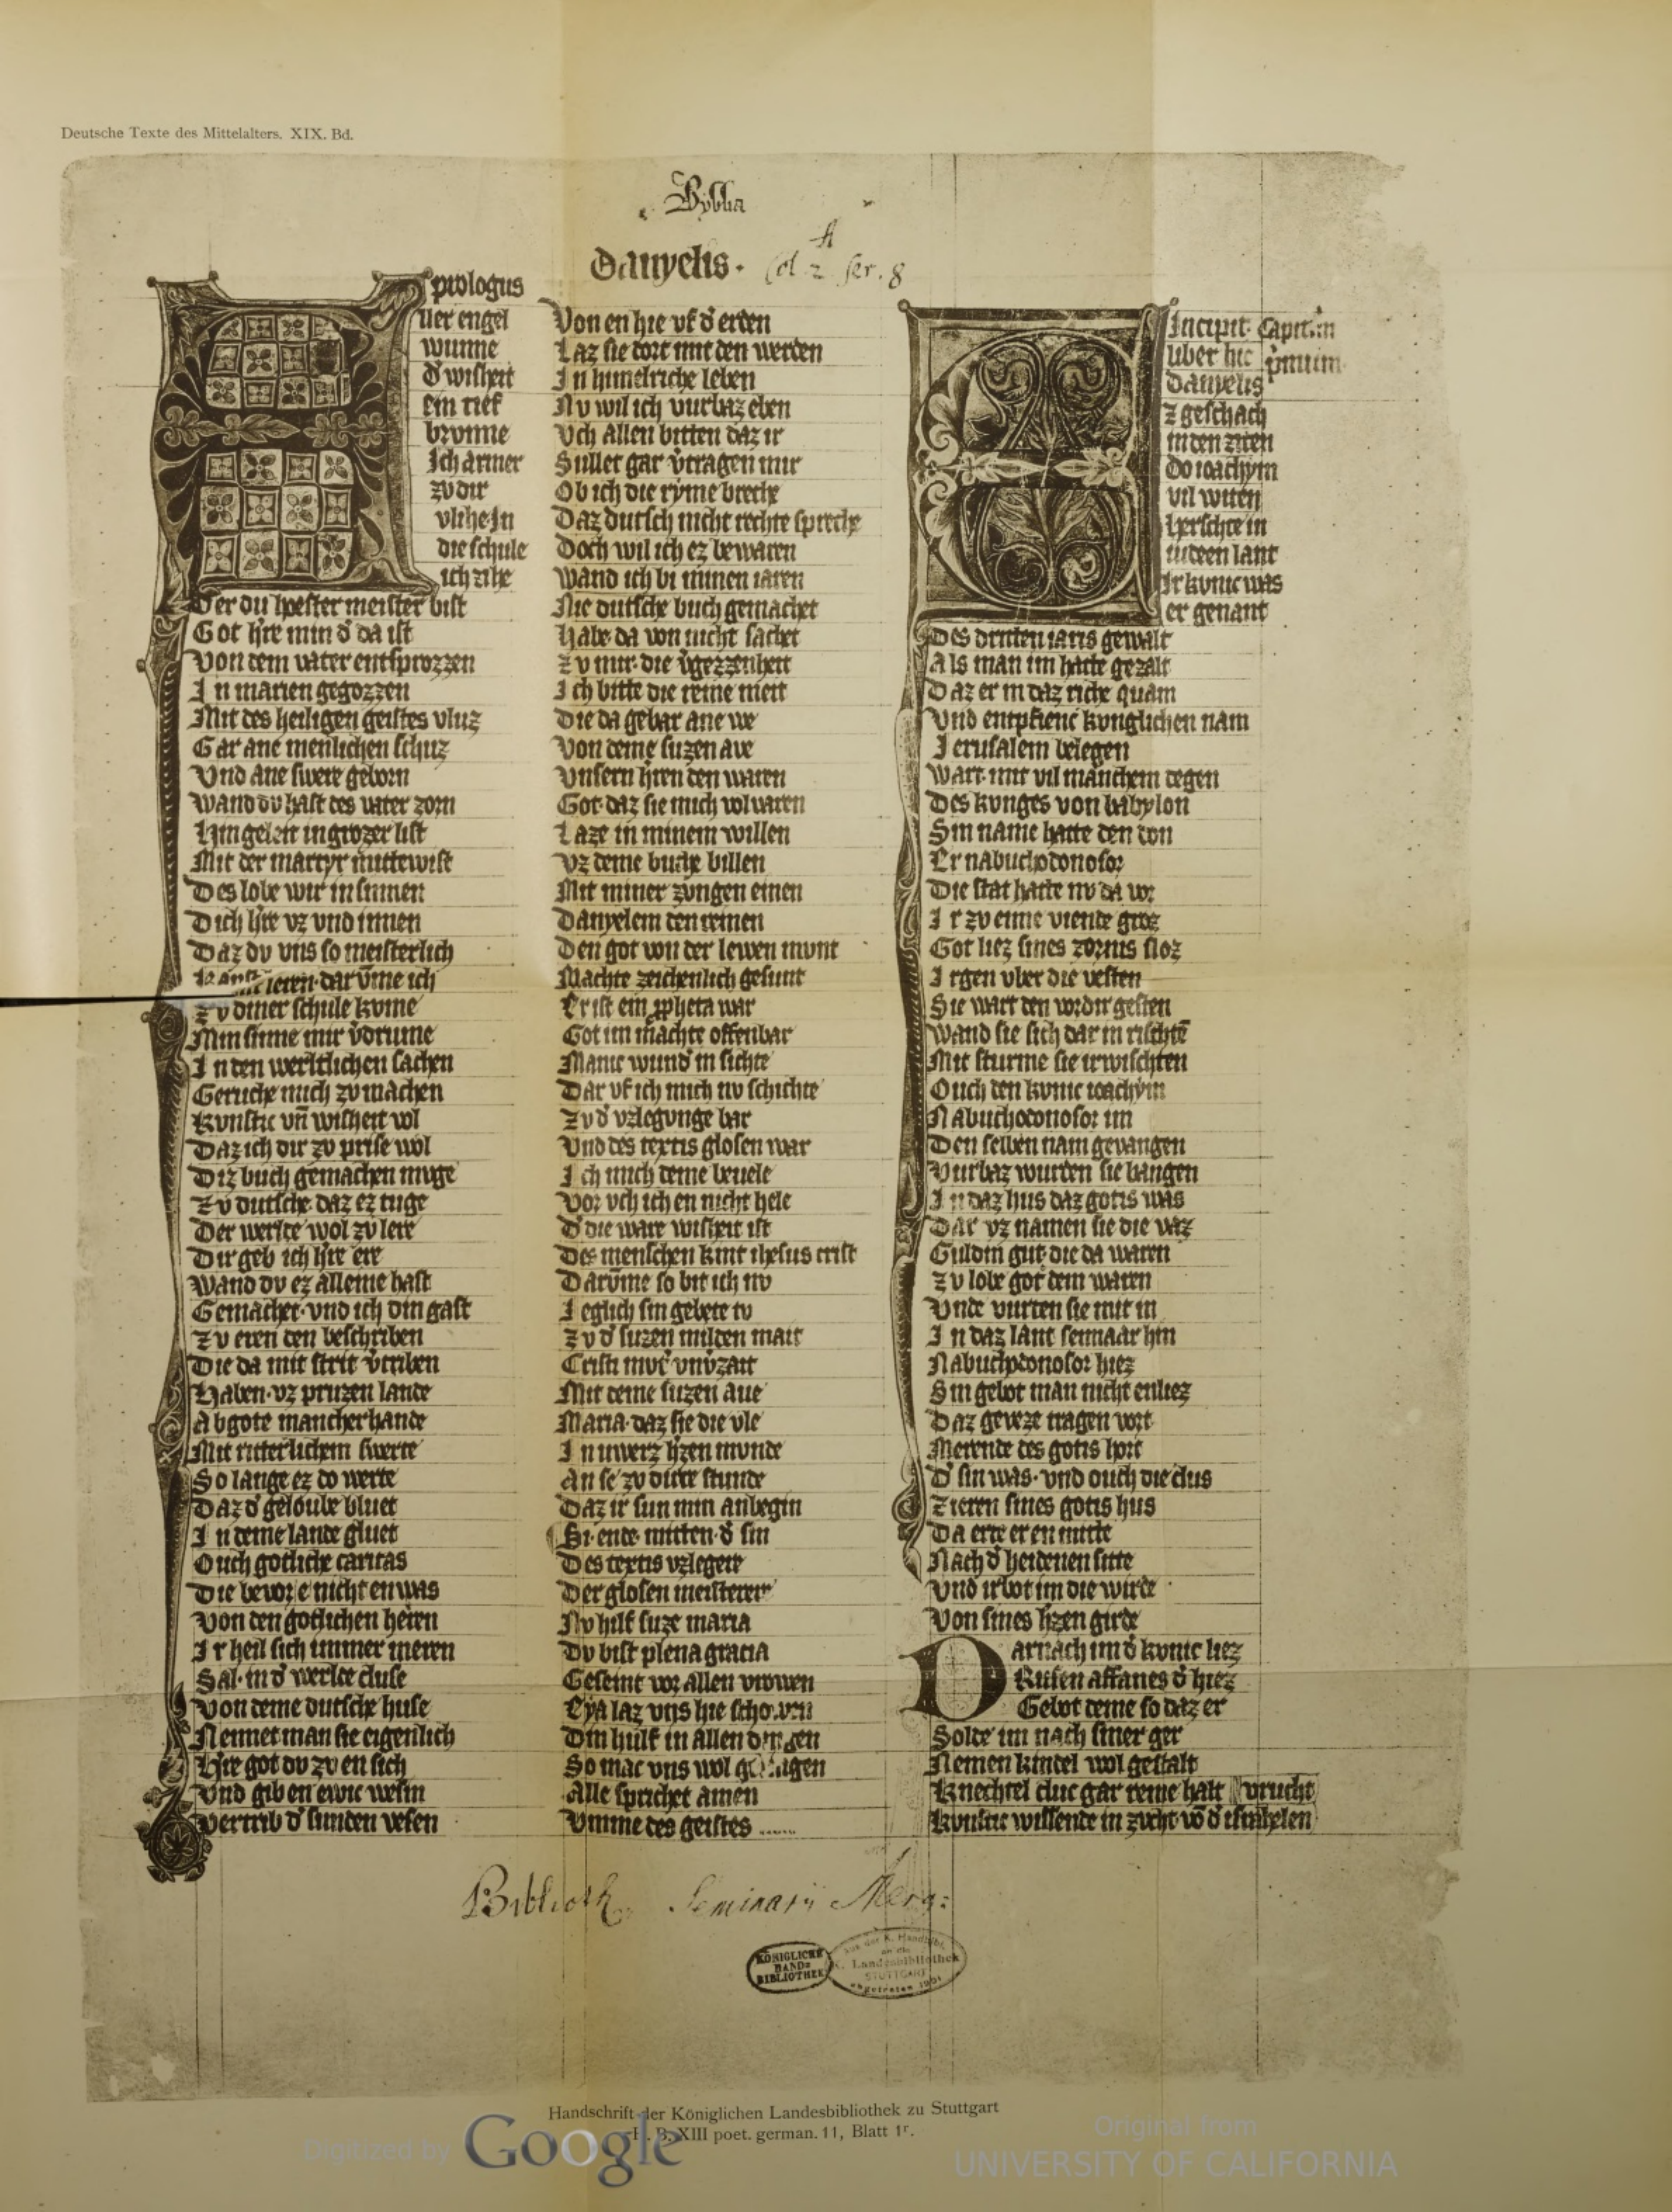 Deutsche Texte des Mittelalters. XIX. Bd.
Byblia
Danyelis.
prologus
ller engel
wunne
d' wisheit
ein tief
brvnne
Ich armer
zv dir
vlihe In
die schule
ich zihe
Der du hoester meister bist
Got h're min d' da ist
Von dem vater entsprozzen
In marien gegozzen
Mit des heiligen geistes vluz
Gar ane menlichen schuz
Vnd ane swere geborn
Wand dv hast des vater zorn
Hin geleit in grozer list
Mit der martyr mittewist
Des lobe wir in sinnen
Dich h're vz vnd innen
Daz dv vns so meisterlich
leren dar vme ich
Zv diner schule kvme
Min sinne mir v'drume
In den werltlichen sachen
Geruche mich zv machen
Kvnstic vn wisheit vol
Daz ich dir zv prise wol
Diz buch gemachen muge
Zv dutsche daz ez tuge
Der werlte wol zv lere
Dir geb ich h're ere
Wand dv ez alleine hast
Gemachet vnd ich din gast
Zv eren den beschriben
Die da mit strit v'triben
Haben vz pruzen lande
Abgote mancher hande
Mit ritterlichem swerte
So lange ez do werte
Daz d' geloube bluet
In deme lande gluet
Ouch gotliche caritas
Die bevor e nicht en was
Von den gotlichen heren
Ir heil sich immer meren
Sal in d' werlte cluse
Von deme dutsche huse
Nennet man sie eigenlich
H're got dv zv en sich
Vnd gib en ewic wesin
Vertrib d' sunden vesen
Von en hie vf d' erden
Laz sie dort mit den werden
In himelriche leben
Nv wil ich vurbaz eben
Vch allen bitten daz ir
Sullet gar v'tragen mir
Ob ich die ryme breche
Daz dutsch nicht rechte spreche
Doch wil ich ez bewaren
Wand ich bi minen iaren
Nie dutsche buch gemachet
Habe da von nicht sachet
Zv mir die v'gezzenheit
Ich bitte die reine meit
Die da gebar ane we
Von deme suzen ave
Vnsern h'ren den waren
Got daz sie mich vol varen
Laze in minem willen
Vz deme buche billen
Mit miner zvngen einen
Danyelem den reinen
Den got von der lewen mvnt
Machte zeichenlich gesunt
Er ist ein ppheta war
Got im machte offenbar
Manic wund' in sichte
Dar vf ich mich nv schichte
Zv d' vzlegvnge bar
Vnd des textis glosen war
Ich mich deme beuele
Vor vch ich en nicht hele
D' die ware wisheit ist
Des menschen kint ihesus crist
Darvme so bit ich nv
Ieglich sin gebete tv
Zv d' suzen milden mait
Cristi mvt' vnv'zait
Mit deme suzen aue
Maria daz sie die vle
In uwerz h'zen mvnde
An se zv dirre stunde
Daz ir sun min anbegin
Si ende mitten d' sin
Des textis vzleger
Der glosen meisterer
Nv hilf suze maria
Dv bist plena gracia
Geseint vor allen vrowen
Eya laz vns hie scho.ven
Din hulf in allen dingen
So mac vns wol gelingen
Alle sprichet amen
Vmme des geistes
Incipit Capitlm
liber hic p'mum
danyelis
z geschach
in den ziten
do ioachym
vil witen
herschte in
iudeen lant
Ir kvnic was
er genant
Des dritten iaris gewalt
Als man im hatte gezalt
Daz er in daz riche quam
Vnd entpfienc kvnglichen nam
Jerusalem belegen
Wart mit vil manchem degen
Des kvnges von babylon
Sin name hatte den don
Er nabuchodonosor
Die stat hatte nv da vor
Ir zv eime viende groz
Got liez sines zornis sloz
Irgen vber die vesten
Sie wart den vordir gesten
Wand sie sich dar in rischte
Mit sturme sie irwischten
Ouch den kvnic ioachym
Nabuchodonosor im
Den selben nam gevangen
Vurbaz wurden sie bangen
In daz hus daz gotis was
Dar vz namen sie die vaz
Guldin gut die da waren
Zv lobe got dem waren
Vnde vurten sie mit in
In daz lant sennaar hin
Nabuchodonosor hiez
Sin gebot man nicht enliez
Daz geveze tragen vort
Merende des gotis hort
D' sin was vnd ouch die clus
Zieren sines gotis hus
Da erte er en mitte
Nach d' heidenen sitte
Vnd irbot im die wirde
Von sines h'zen girde
Darnach im d' kvnic liez
Rufen affanes d' hiez
Gebot deme so daz er
Solde im nach siner ger
Nemen kindel wol gestalt
Knechtel cluc gar reine halt vrucht
Kvnstic wissende in zucht vo d' israhelen
Biblioth. Seminarii Merg:
KÖNIGLICHE
HAND-
BIBLIOTHEK
Aus der K. Handbibl.
an die
K. Landesbibliothek
STUTTGART
abgetreten 1901
Handschrift der Königlichen Landesbibliothek zu Stuttgart
H. B. XIII poet. german. 11, Blatt 1r.
Digitized by Google
Original from
UNIVERSITY OF CALIFORNIA